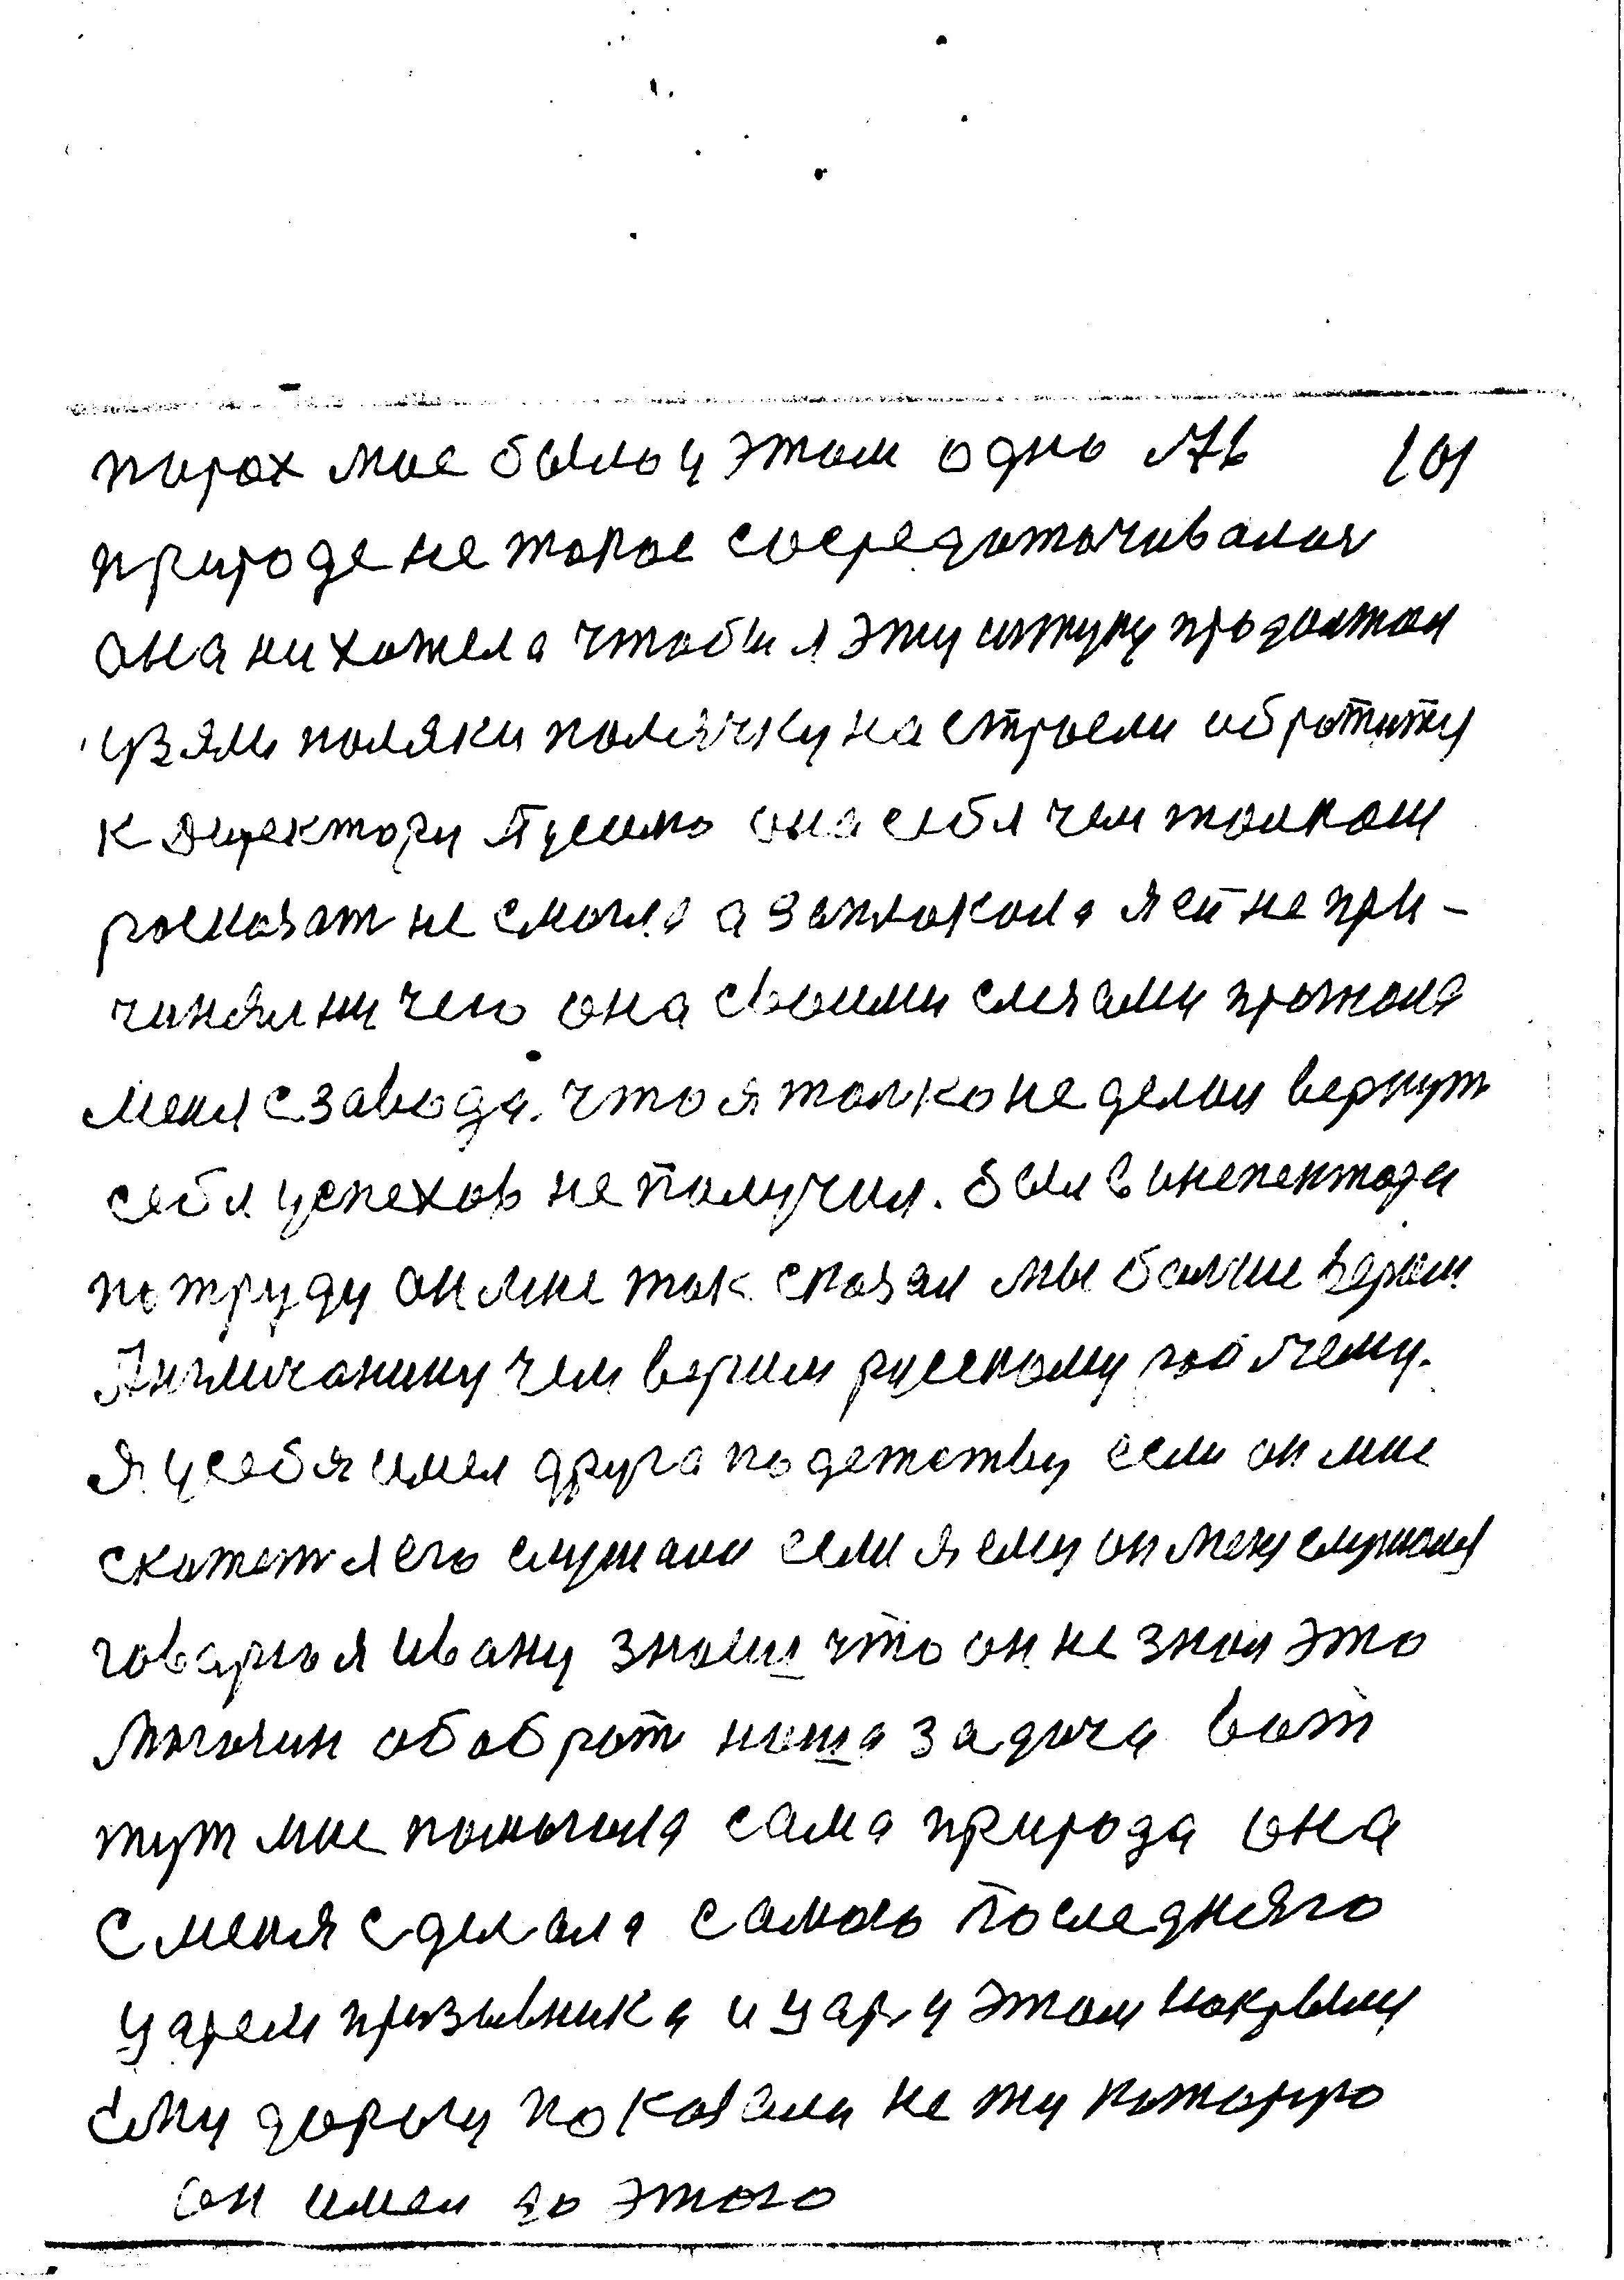 пирох мне было у этом одно Ав 101
природе не токое сосредоточивалоя
она ни хотела чтобы я эту штуку продолжал
узяли поляки полячку настроели обротиту
к директору она себя чем толком
росказат не смогла а заплокола я ей не при-
чинял ни чего она своими слезами прогнала
меня с завода. что я толко не делал вернут
себя успехов не получил. был в инспектора
по труду он мне так сказал мы болше верим
Англичанину чем верим русскому робочему.
я у себя имел друга по детству если он мне
скажет я его слушал если я ему он меня слушал
говарю я ивану знаеш что он не знал это
могозин обоброт наша задача вот
тут мне помогала сама природа она
с меня сделала самого последняго
царем призывника и царя у этом накрыли
ему дорогу показали не ту которую
он имел до этого